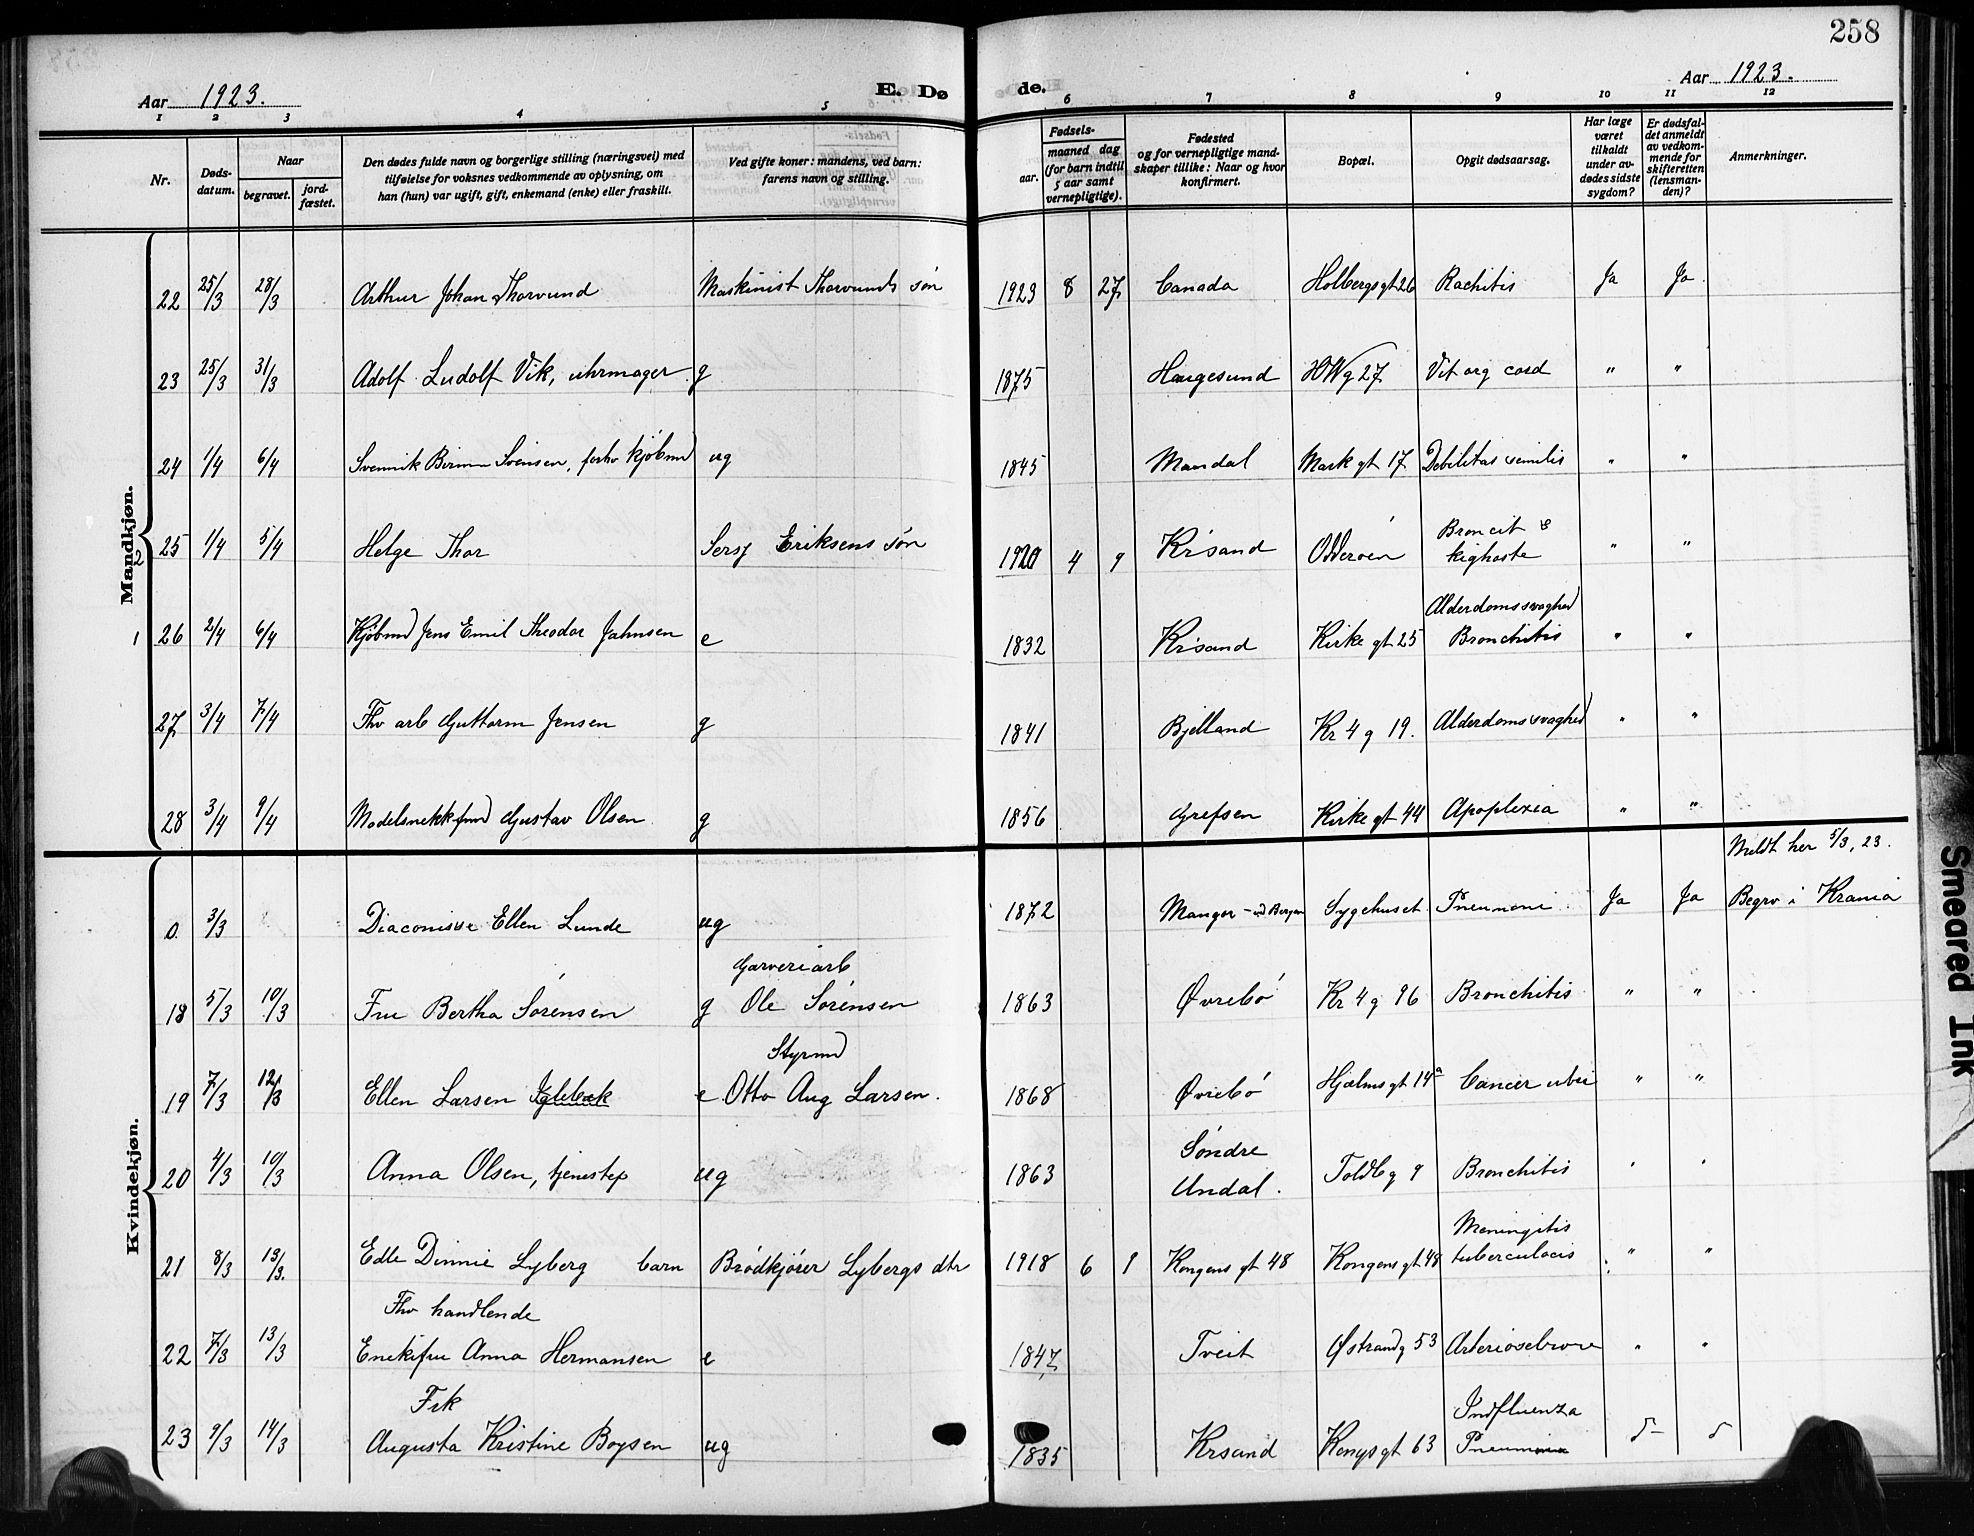 258
Aar 1923.
E. Dø
de.
Aar 1923.
1 2 3 4 5 6 7 8 9 10 11 12
Nr.
Døds-
datum.
Naar
begravet.
jord-
fæstet.
Den dødes fulde navn og borgerlige stilling (næringsvei) med
tilføielse for voksnes vedkommende av oplysning, om
han (hun) var ugift, gift, enkemand (enke) eller fraskilt.
Ved gifte koner: mandens, ved barn:
farens navn og stilling.
Fødsels-
aar.
maaned dag
(for barn indtil
5 aar samt
vernepligtige).
Fødested
og for vernepligtige mand-
skaper tillike: Naar og hvor
konfirmert.
Bopæl.
Opgit dødsaarsag.
Har læge
været
tilkaldt
under av-
dødes sidste
sygdom?
Er dødsfal-
det anmeldt
av vedkom-
mende for
skifteretten
(lensman-
den)?
Anmerkninger.
Mandkjøn.
22 25/3 28/3 Arthur Johan Thorvund Maskinist Thorvunds søn 1923 8 27 Canada Holbergsgt 26 Rachitis Ja Ja
23 25/3 31/3 Adolf Ludolf Vik, uhrmager g 1875 Haugesund HWg 27 Vit org cord " "
24 1/4 6/4 Svensen, forhv kjøbmd ug 1845 Mandal Mark gt 17 Debilitas senilis " "
2 25 1/4 5/4 Helge Thor Sersj Eriksens søn 1920 4 9 Kr'sand Odderøen Broncit &
kighoste " "
1 26 2/4 6/4 Kjøbmd Jens Emil Theodor Jahnsen e 1832 Kr'sand Kirke gt 25 Alderdomssvaghed
Bronchitis " "
27 3/4 7/4 Fhv arb Guttorm Jensen g 1841 Bjelland Kr 4 g 19. Alderdomssvaghed " "
28 3/4 9/4 Modelsnekk Gustav Olsen g 1856 Grefsen Kirke gt 44 Apoplexia " "
Kvindekjøn.
Meldt her 5/3, 23.
0. 3/3 Diaconisse Ellen Lunde ug 1872 Manger - ved Bergen Sygehuset Pneumoni Ja Ja Begrv i Krania
Garveriarb
18 5/3 10/3 Fru Bertha Sørensen g Ole Sørensen 1863 Øvrebø Kr 4 g 96 Bronchitis " "
Styrmd
19 7/3 12/3 Ellen Larsen Iglebæk e Otto Aug Larsen. 1868 Øvrebø Hjelmsgt 14a Cancer " "
20 4/3 10/3 Anna Olsen, tjenestep ug 1863 Søndre
Undal. Toldbg 9 Bronchitis " "
21 8/3 13/3. Edle Dinnie Lyberg barn Brødkjører Lybergs dtr 1918 6 9 Kongens gt 48 Kongensgt 48 Meningitis
tuberculosis " "
Fhv handlende
22 7/3 13/3 Enkefru Anna Hermansen e 1847 Tveit Østrandg 53 " "
Frk
23 9/3 14/3 Augusta Kristine Boysen ug 1835 Krsand Kongsgt 63 Indfluenza
Pneumonia
Smeared Ink